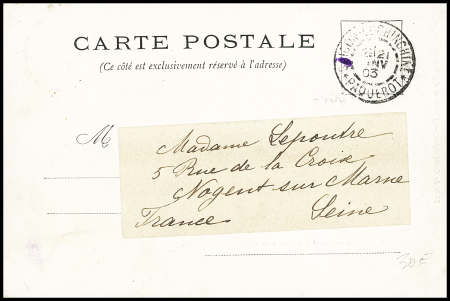 CARTE POSTALE
(Ce côté est exclusivement réservé à l'adresse)
COCHINCHINE
21
03
PAQUEBOT
M
Madame Lepoutre
5 Rue de la Croix
Nogent sur Marne
France Seine
30€